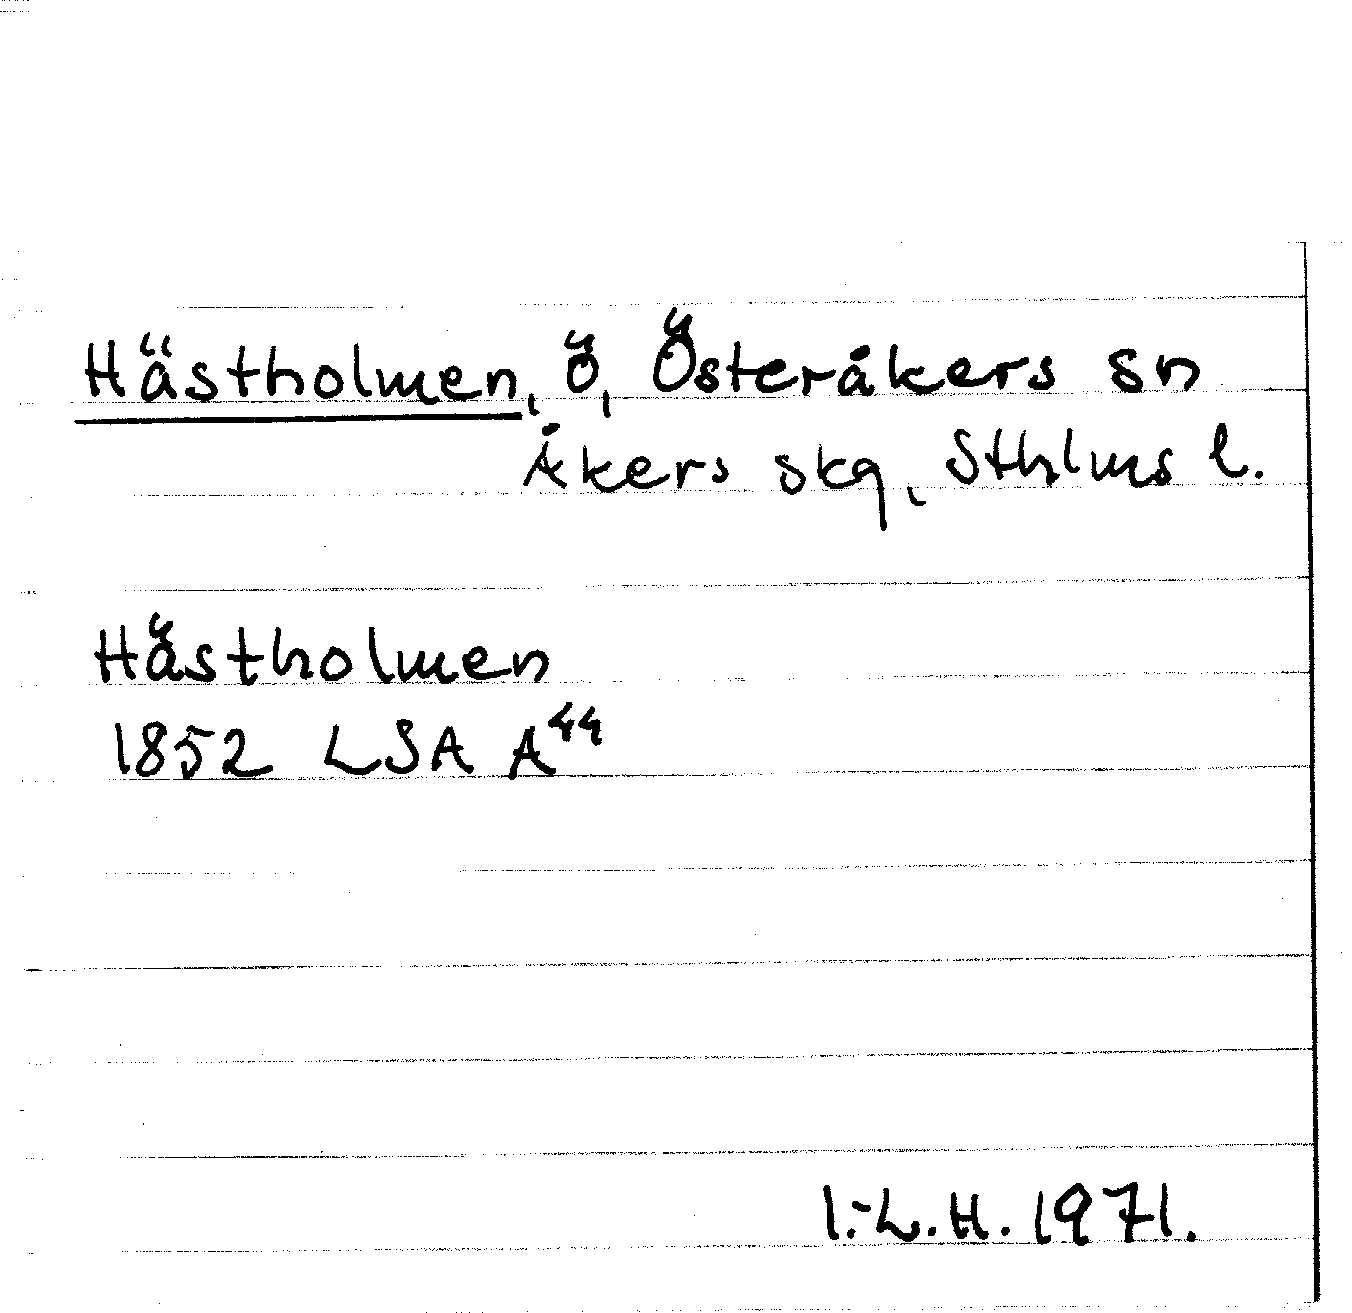 Hästholmen, Ö, Österåkers sn
Åkers skg, Sthlms l.
Hästholmen
1852 LSA A⁴⁴
I.-L.H. 1971.